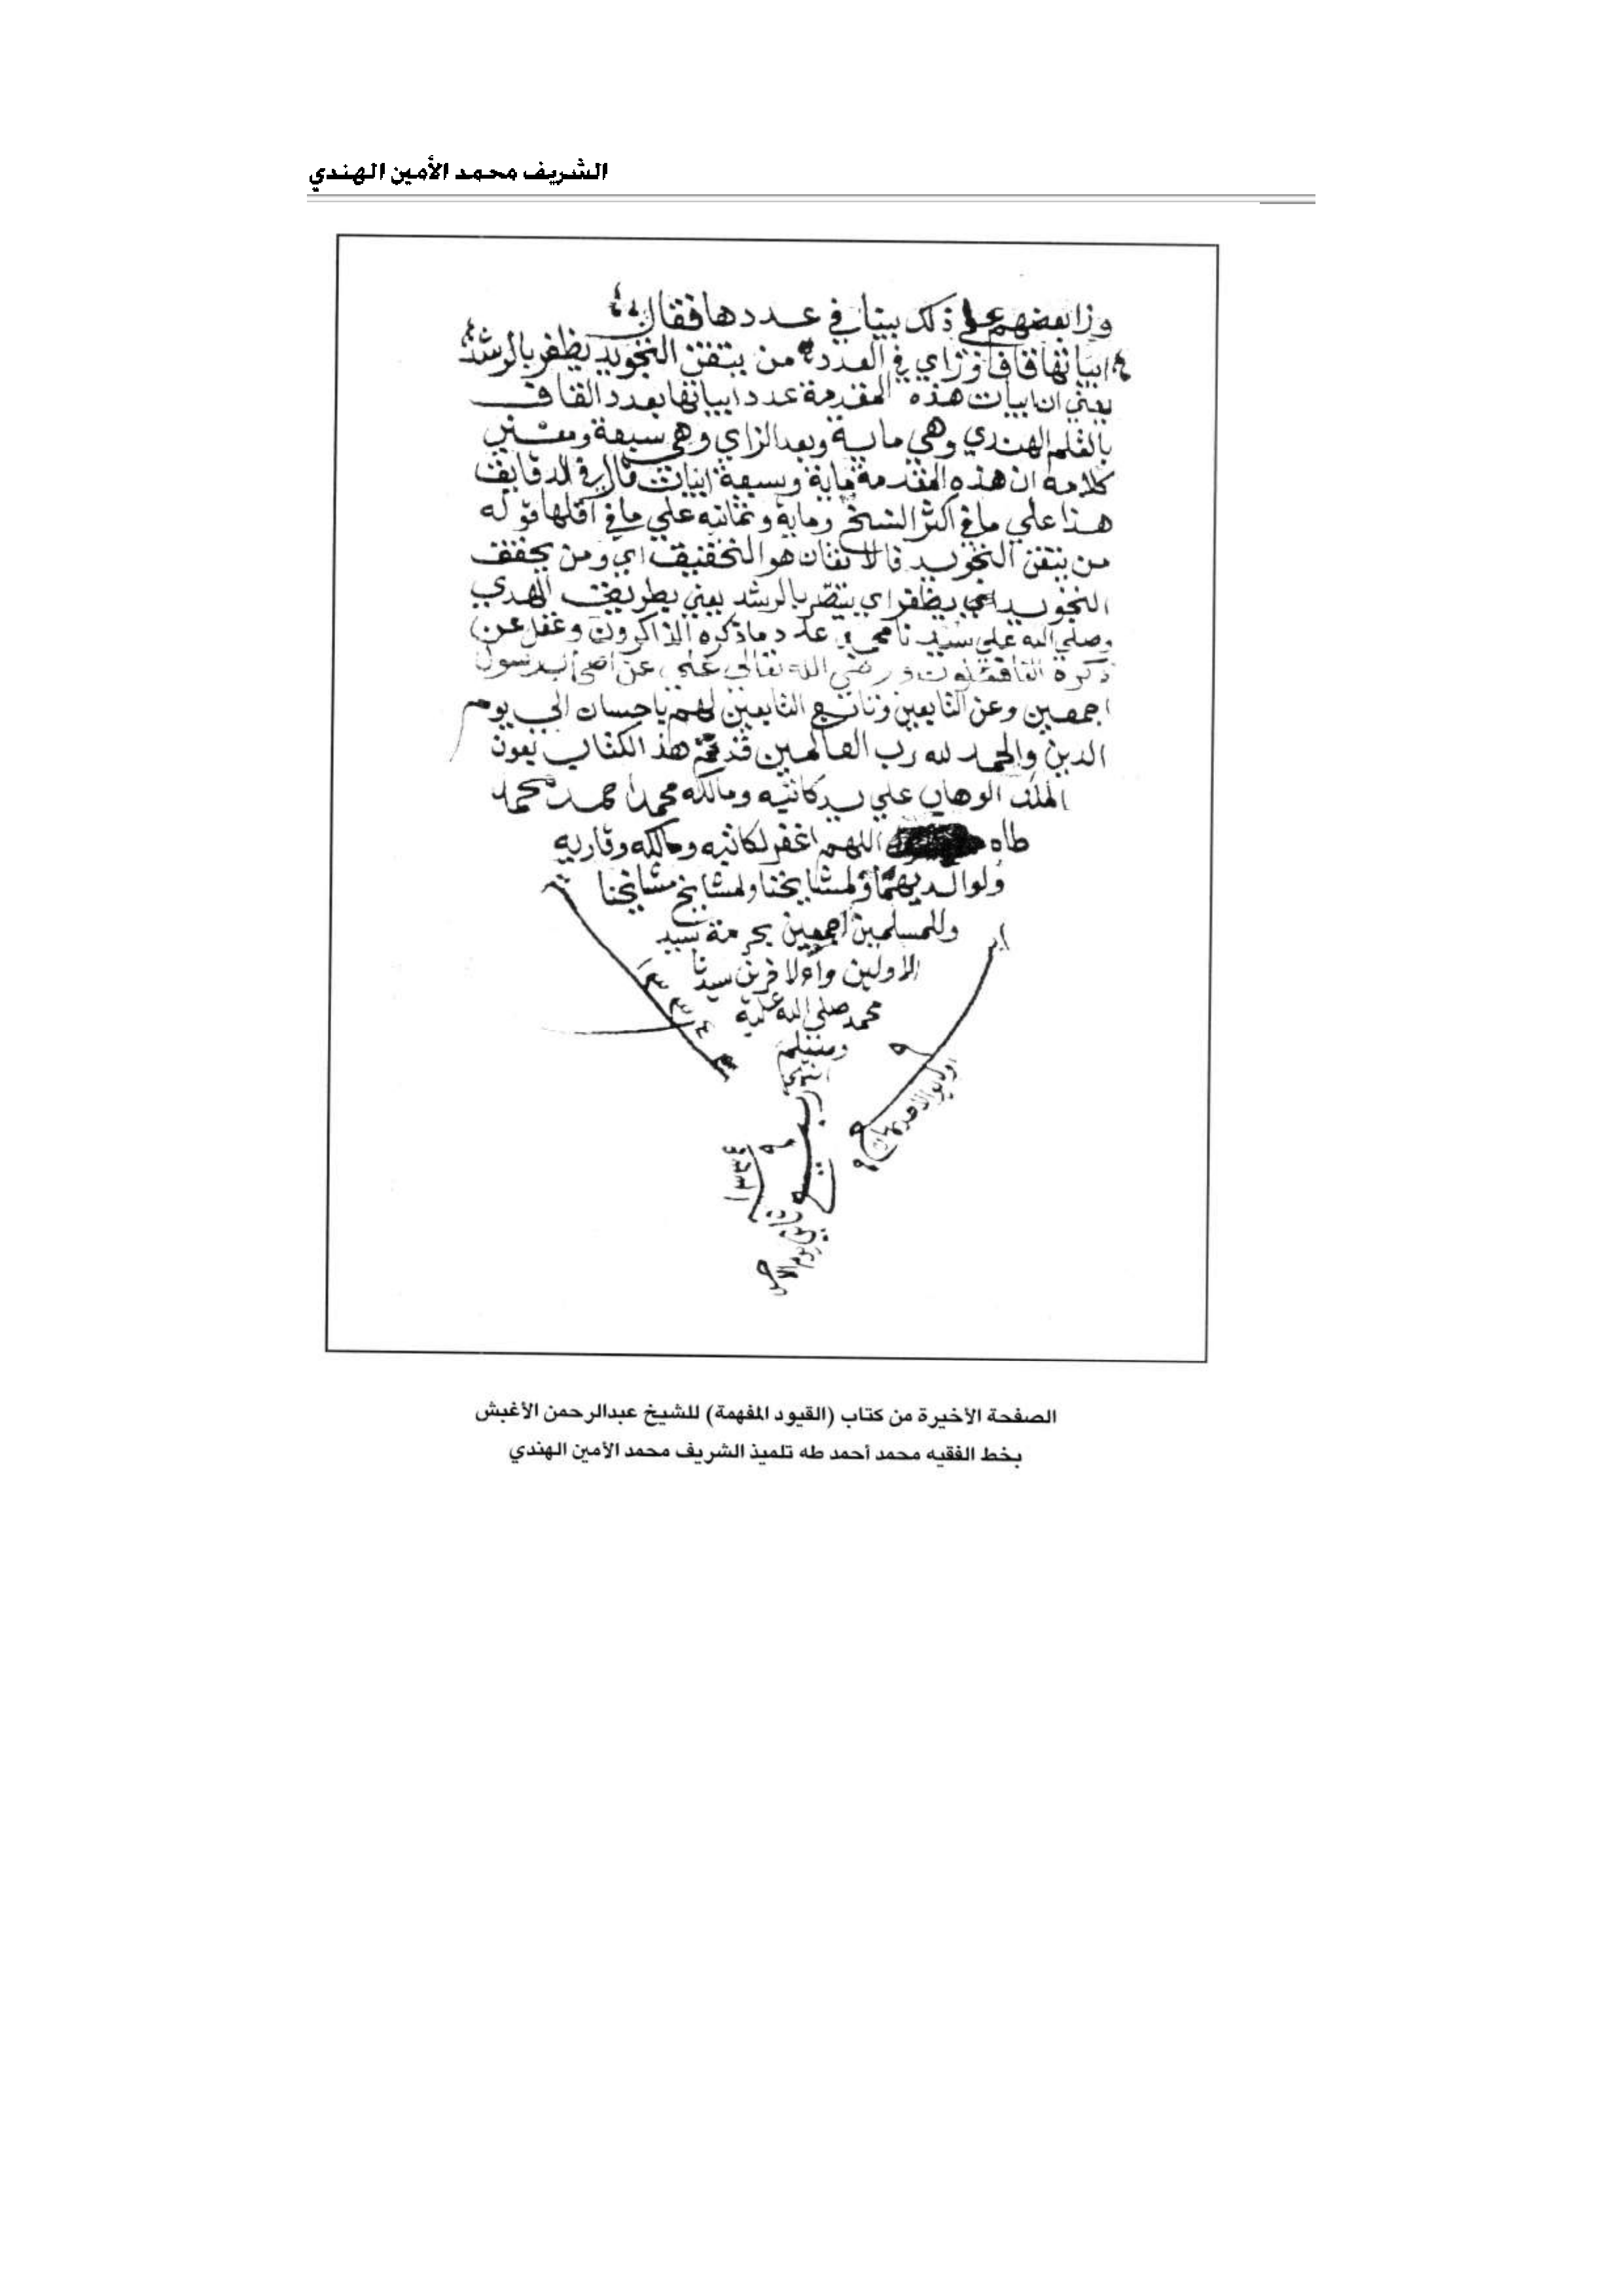 الشريف محمد الأمين الهندي
وزا بعضهم علي ذلك بيتا في عددها فقال
ابياتها قاف وزاي في العدد من يتقن التجويد يظفر بالرشد
يعني ان ابيات هذه المقدمة عدد ابياتها بعدد القاف
بالقلم الهندي وهي ماية وبعد الزاي وهي سبعة ومعني
كلامه ان هذه المقدمة ماية وسبعة ابيات قال في الدقايق
هذا علي ما في اكثر النسخ وماية وثمانيه علي ما في اقلها قوله
من يتقن التجويد فالاتقان هو التحقيق اي ومن يحقق
التجويد يظفر اي ينتصر بالرشد يعني بطريق الهدي
وصلي الله علي سيدنا محمد عدد ما ذكره الذاكرون وغفل عن
ذكره الغافلون ورضي الله تعالي عن اصحاب رسول
اجمعين وعن التابعين وتابع التابعين لهم باحسان الي يوم
الدين والحمد لله رب العالمين قد تم هذ الكتاب بعون
الملك الوهاب علي يد كاتبه ومالكه محمد احمد محمد
طاه اللهم اغفر لكاتبه ومالكه وقاريه
ولوالديهما ولمشايخنا ولمشايخ مشايخنا
وللمسلمين اجمعين بحرمة سيد
الاولين والاخرين سيدنا
محمد صلي الله عليه
وسلم
انتهي
١٣٣٤
١٣٣٤
الصفحة الأخيرة من كتاب (القيود المفهمة) للشيخ عبدالرحمن الأغبش
بخط الفقيه محمد أحمد طه تلميذ الشريف محمد الأمين الهندي